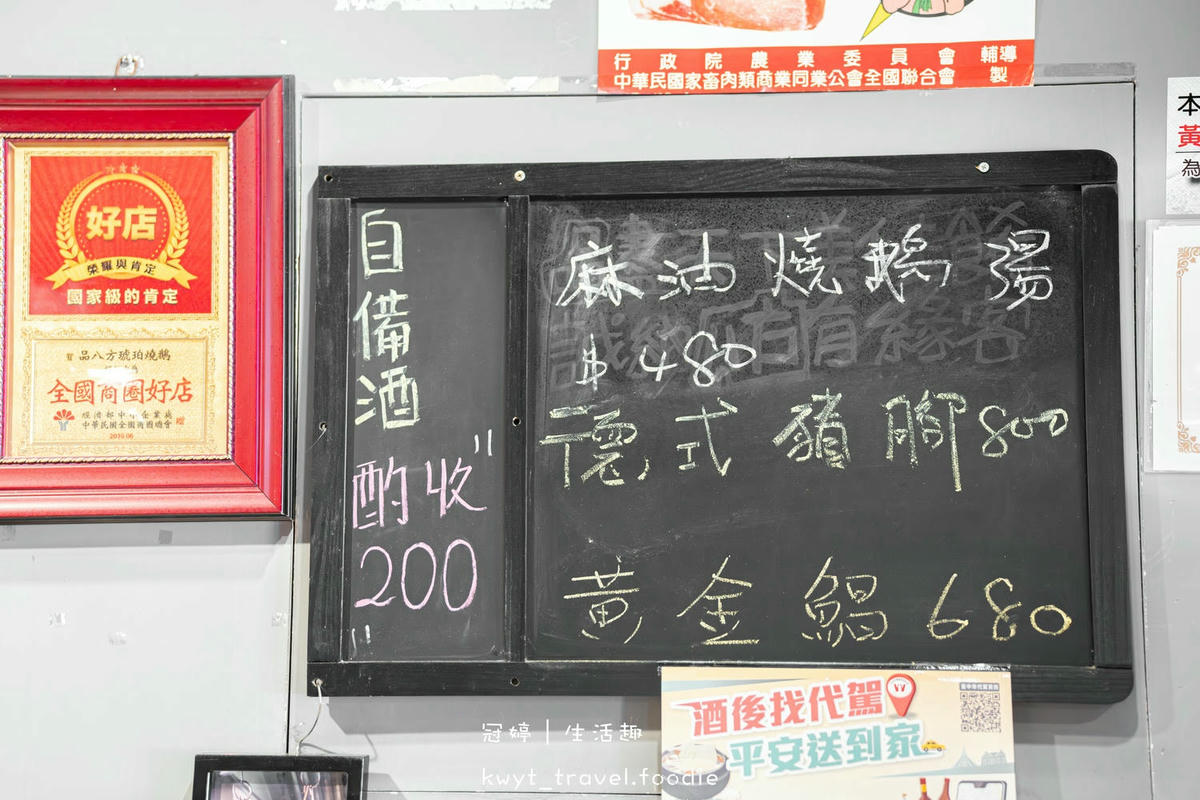 行政院農業委員會 輔導
中華民國家畜肉類商業同業公會全國聯合會 製
好店
榮耀與肯定
國家級的肯定
賀 品八方琥珀燒鵝
全國商圈好店
經濟部中小企業處
中華民國全國商圈總會 贈
2016.06
自備酒
酌收"
200
"
麻油燒鵝湯
$480
德式豬腳800
黃金鯧680
本
黃
為
酒後找代駕
平安送到家
冠婷|生活趣
kwyt_travel.foodie